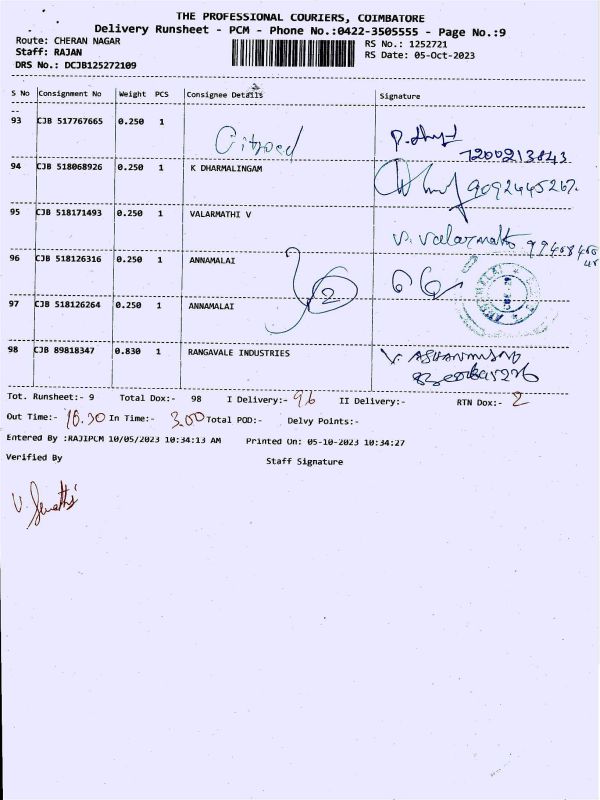 THE PROFESSIONAL COURIERS, COIMBATORE
Delivery Runsheet - PCM - Phone No.:0422-3505555 - Page No.:9
Route: CHERAN NAGAR RS No.: 1252721
Staff: RAJAN RS Date: 05-Oct-2023
DRS No.: DCJB125272109
S No Consignment No Weight PCS Consignee Details Signature
93 CJB 517767665 0.250 1
7200213843
94 CJB 518068926 0.250 1 K DHARMALINGAM
9092445267.
95 CJB 518171493 0.250 1 VALARMATHI V
V. Valarmathi
96 CJB 518126316 0.250 1 ANNAMALAI
97 CJB 518126264 0.250 1 ANNAMALAI
98 CJB 89818347 0.830 1 RANGAVALE INDUSTRIES
Tot. Runsheet:- 9 Total Dox:- 98 I Delivery:- 96 II Delivery:- RTN Dox:- 2
Out Time:- 10.30 In Time:- 3.00 Total POD:- Delvy Points:-
Entered By :RAJIPCM 10/05/2023 10:34:13 AM Printed On: 05-10-2023 10:34:27
Verified By Staff Signature